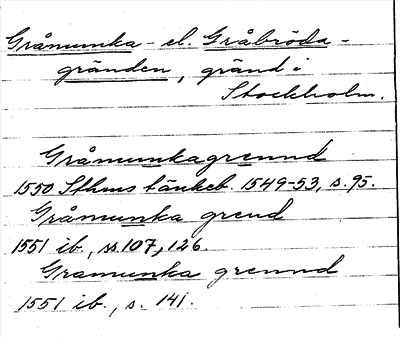 Gråmunka- el. Gråbröda-
gränden, gränd i
Stockholm.
Gråmunkagrennd
1550 Sthms tänkeb. 1549-53, s. 95.
Gråmunka grend
1551 ib., ss. 107, 126.
Gramunka grennd
1551 ib., s. 141.